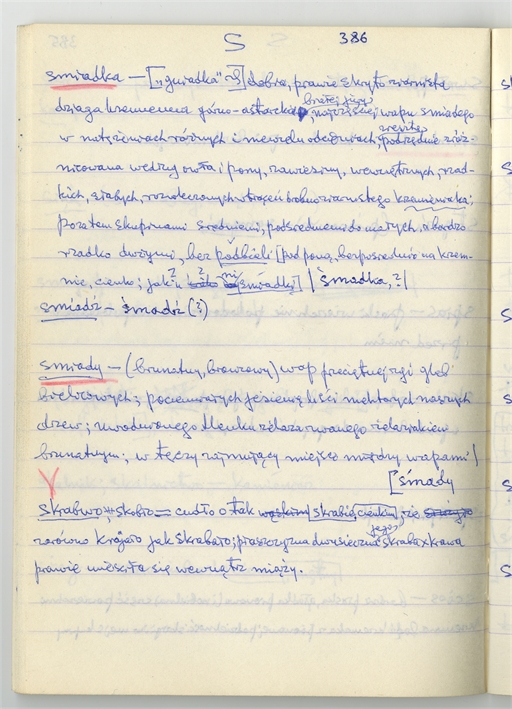 S 386
smiadka — ["gwiadka" ?] dobra, prawie skryto ziarnista
działa krzemienna górno-astarcka, najczęściej wapu smiadego
bratej jury
w natężeniach różnych i niewielu odcieniach, zresztą podrzędnie zróż-
nicowana wedrzy owła i pony, zawiesiny, wewnętrznych, rzad-
kich, słabych, rozrzedzonych wtrąceń drobnoziarnistego krzemieniaka;
poza tem skupinami średniemi, pośredniemi do małych, a bardzo
rzadko dużymi, bez podbieli [pod poną, bezpośrednio na krzem-
nie, cienko; jak ? śmiadki] / śmadka, ?]
smiadź — śmadź (?)
smiady — (brunatny, bronzowy) wap przeciętnej rgi gleb
bielicowych; pociemniałych jesienią liści niektórych naszych
drzew; uwodnionego tlenku żelaza zwanego żelaziakiem
brunatnym; w tęczy zajmujący miejsce między wapami /
[śmady
skrabwo, skobło = cudło o tak wąskiej skrabię cienkiej, że
zarówno krójało jak skrabało; płaszczyzna dwusieczna jego skraba x krawa
prawie mieściła się wewnątrz miąży.